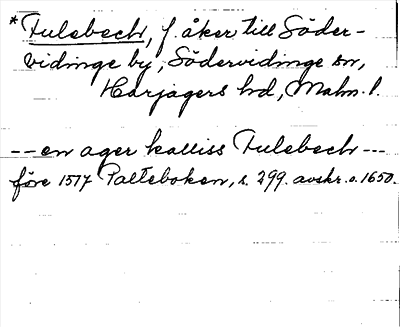 *Fulebech, f. åker till Söder-
vidinge by, Södervidinge sn,
Harjagers hd, Malm. l.
-- en ager kalliss Fulebech ---
före 1577 Palteboken, s. 299. avskr. o. 1650.